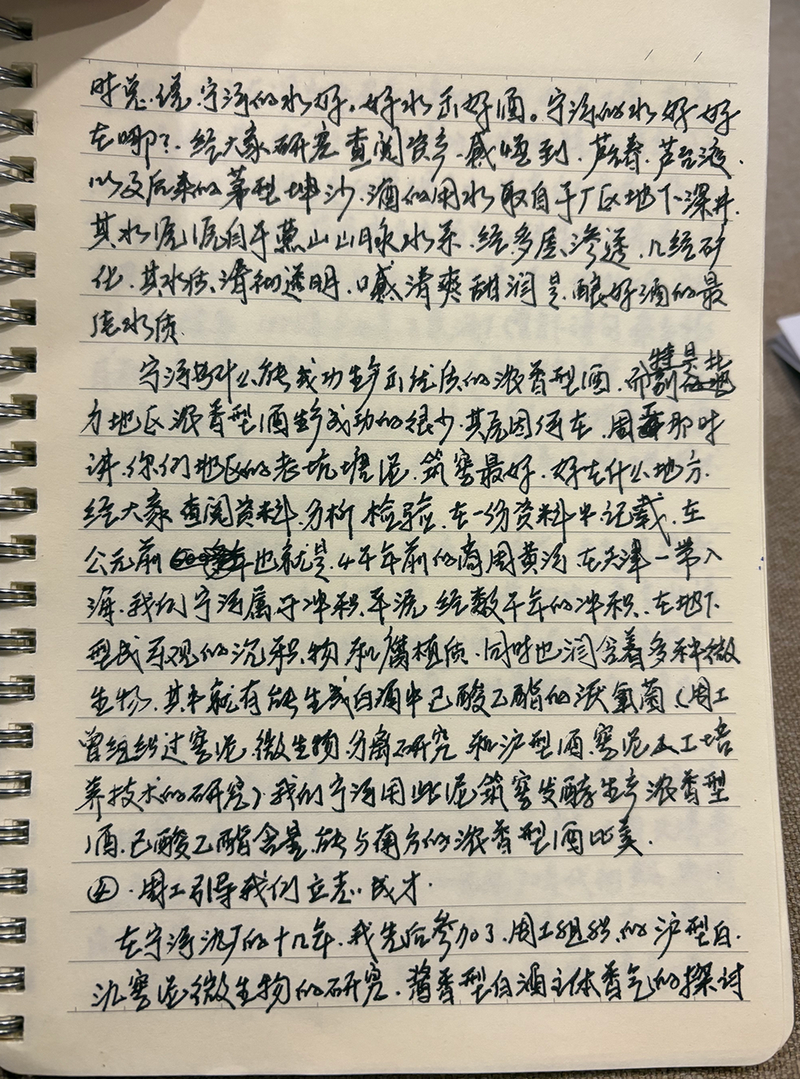 时总说,宁河的水好。好水示好酒。宁河的水好好
在哪?经大家研究查阅资产,感悟到,芦台春,芦台液,
以及后来的茅型坤沙,酒的用水取自于厂区地下深井
其水流源自于燕山山脉水系,经多层渗透,几经矿
化,其水质清彻透明,口感清爽甜润是酿好酒的最
佳水质
宁河为什么能成功生产示优质的浓香型酒,而特别是北
方地区浓香型酒生产成功的很少,其原因何在,周工那时
讲,你们地区的老坑塘泥,筑窖最好,好在什么地方
经大家查阅资料,分析检验,在一份资料中记载,在
公元前也就是4千年前的商周黄河在天津一带入
海,我们宁河属于冲积平流,经数千年的冲积,在地下
型成可观的沉积物和腐植质,同时也润含着多种微
生物,其中就有能生成白酒中己酸乙酯的厌氧菌(周工
曾组织过窖泥微生物分离研究和沪型酒窖泥人工培
养技术的研究)我们宁河用此泥筑窖发酵生产浓香型
酒,己酸乙酯含量,能与南方的浓香型酒比美.
④.周工引导我们立志成才.
在宁河氿厂的十几年,我先后参加了周工组织的沪型白
氿窖泥微生物的研究,酱香型白酒主体香气的探讨